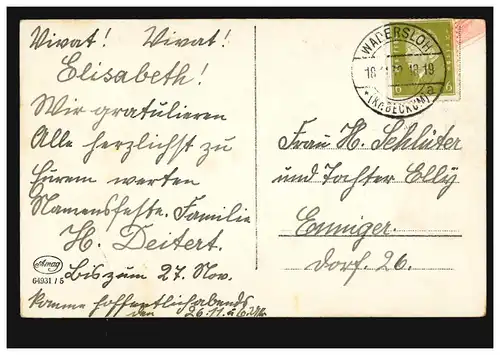 Vivat! Vivat!
Elisabeth!
Wir gratulieren
Alle herzlichst zu
Eurem werten
Namensfeste. Familie
H. Deitert.
Bis zum 27. Nov.
komme hoffentlich abends
den 26.11.
Amag
64931/5
WADERSLOH
18 18-19
a
*(KR.BECKUM)
6
Frau H. Schlüter
und Tochter Elly
Enniger.
Dorf. 26.